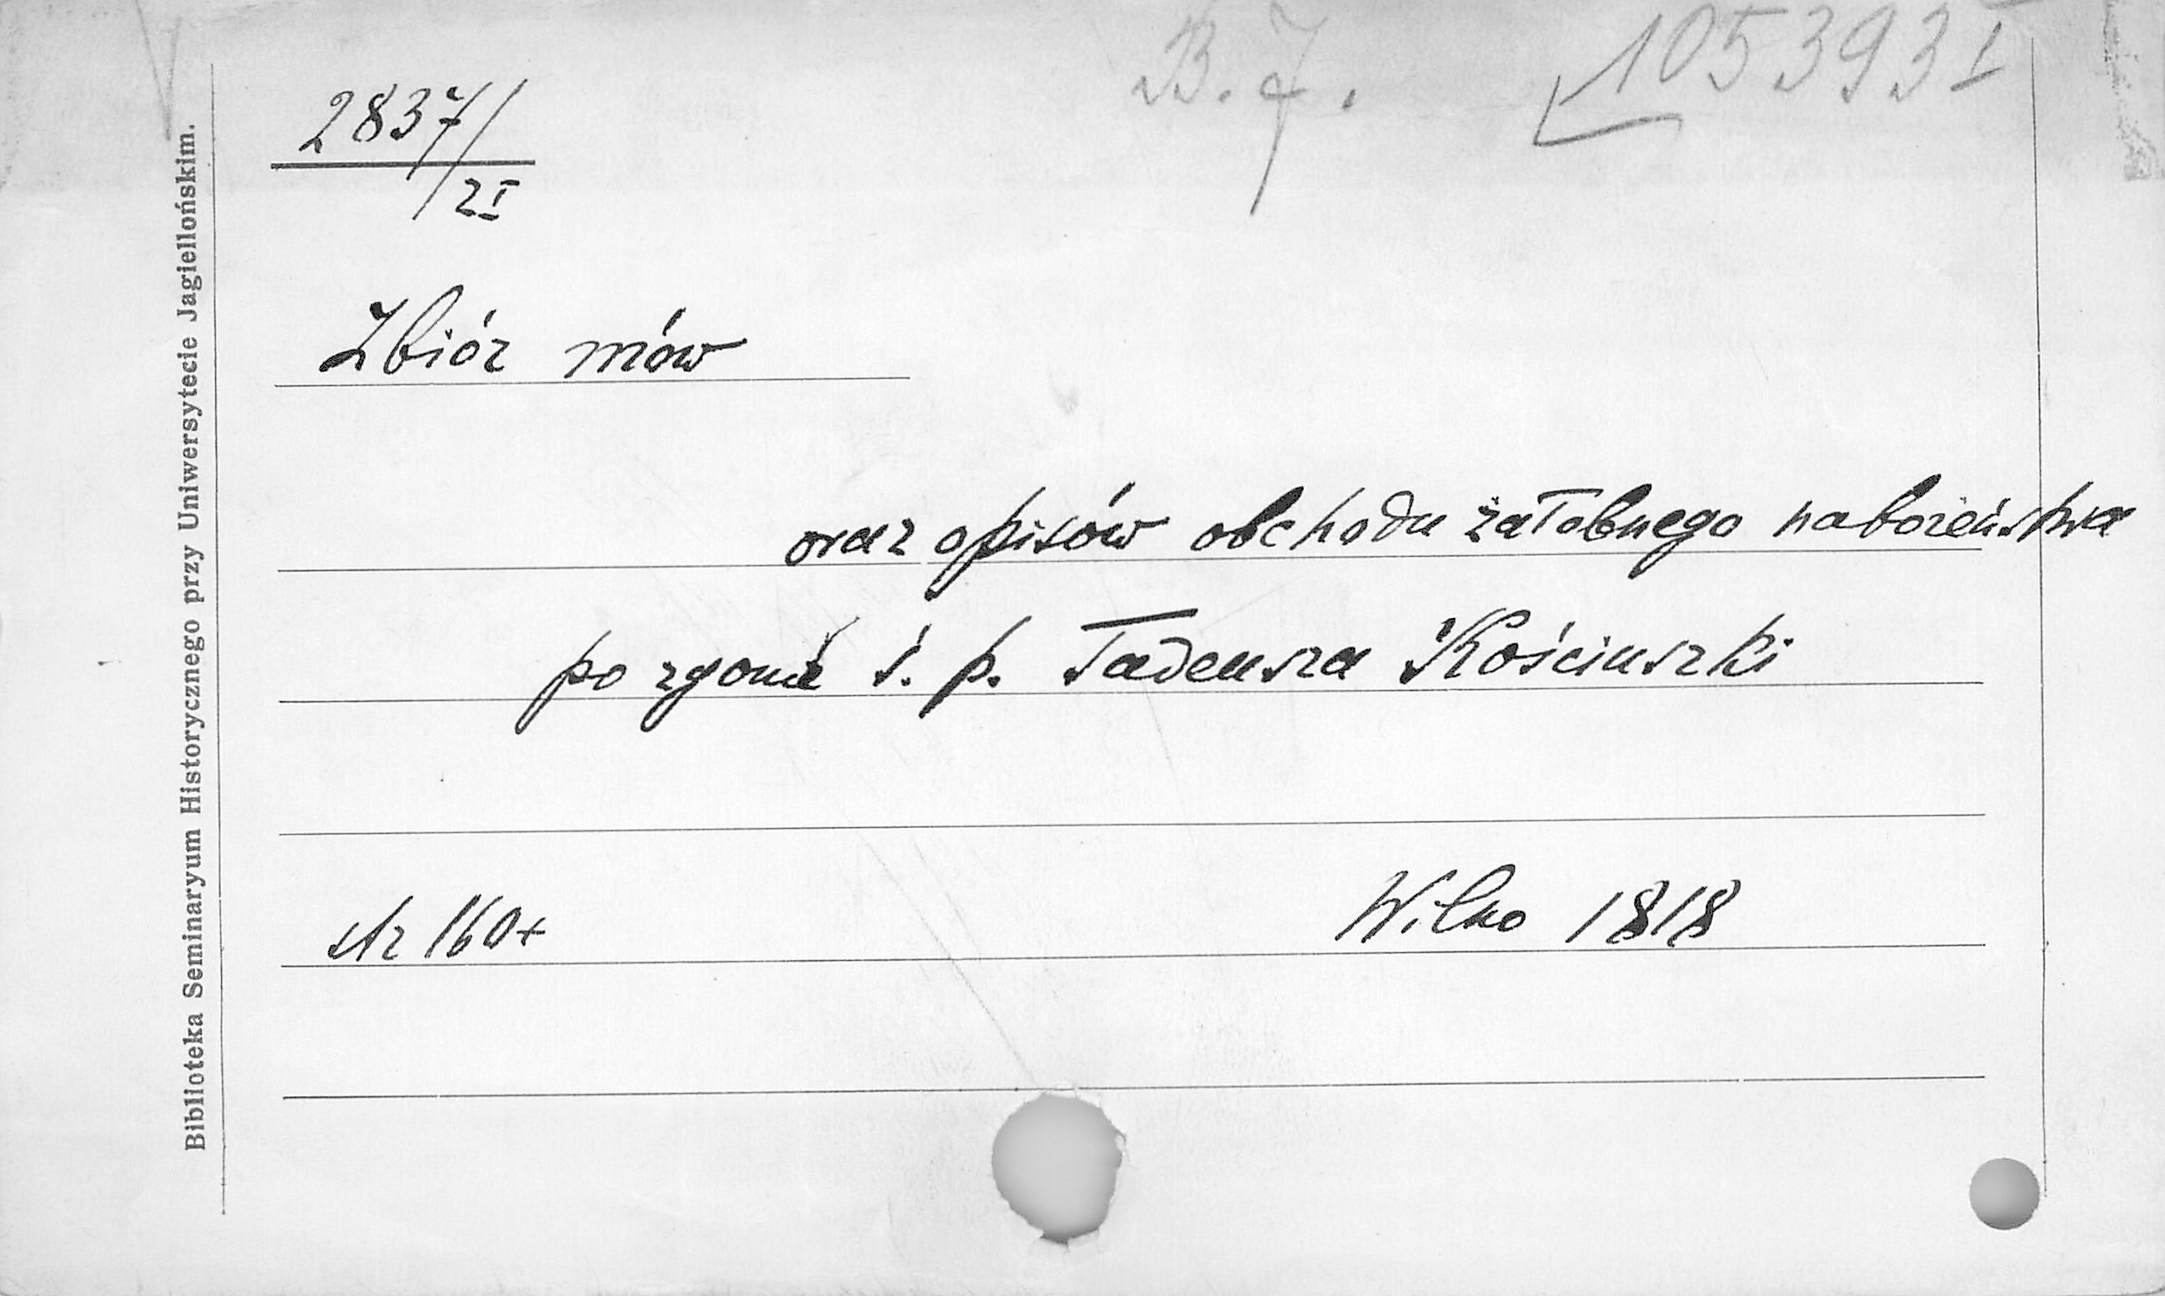 B. J. 105393 I
2837/2I
Zbiór mów
oraz opisów obchodu żałobnego nabożeństwa
po zgonie ś. p. Tadeusza Kościuszki
str 160+
Wilno 1818
Biblioteka Seminaryum Historycznego przy Uniwersytecie Jagiellońskim.